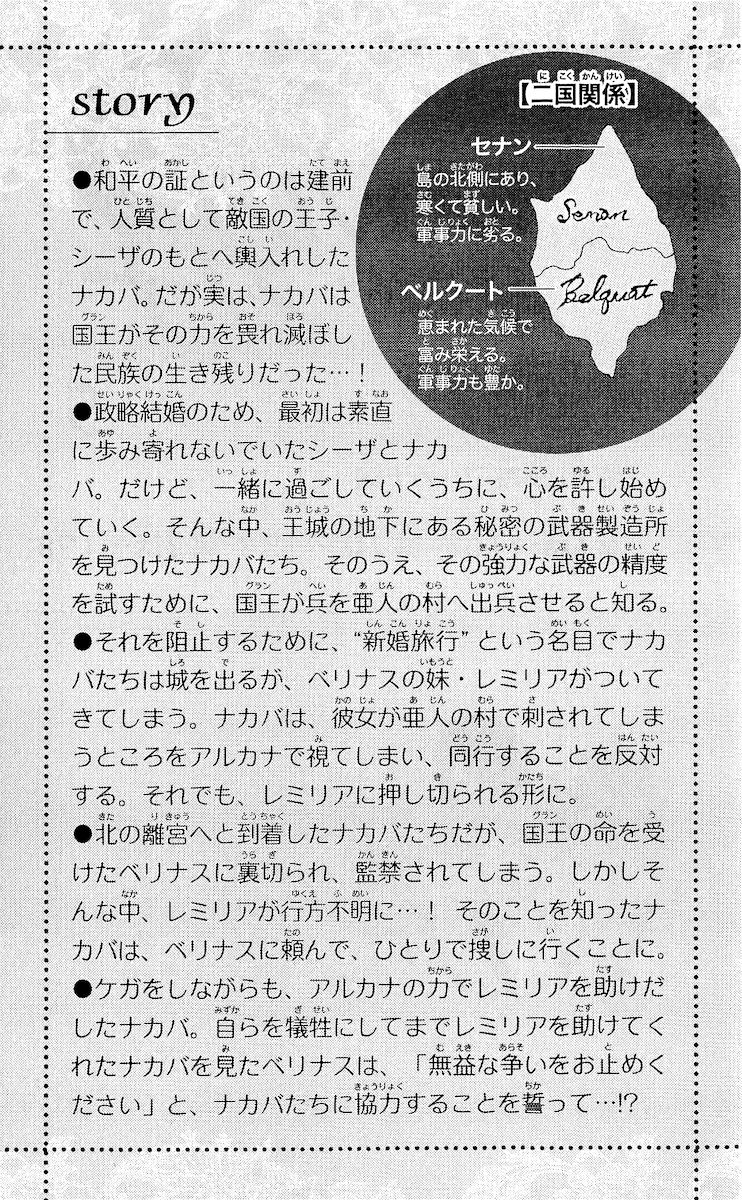 story
【二国関係】
セナン
島の北側にあり、
寒くて貧しい。
軍事力に劣る。
Senan
ベルクート
恵まれた気候で
富み栄える。
軍事力も豊か。
Belquat
●和平の証というのは建前
で、人質として敵国の王子・
シーザのもとへ輿入れした
ナカバ。だが実は、ナカバは
国王がその力を畏れ滅ぼし
た民族の生き残りだった…！
●政略結婚のため、最初は素直
に歩み寄れないでいたシーザとナカ
バ。だけど、一緒に過ごしていくうちに、心を許し始め
ていく。そんな中、王城の地下にある秘密の武器製造所
を見つけたナカバたち。そのうえ、その強力な武器の精度
を試すために、国王が兵を亜人の村へ出兵させると知る。
●それを阻止するために、“新婚旅行”という名目でナカ
バたちは城を出るが、ベリナスの妹・レミリアがついて
きてしまう。ナカバは、彼女が亜人の村で刺されてしま
うところをアルカナで視てしまい、同行することを反対
する。それでも、レミリアに押し切られる形に。
●北の離宮へと到着したナカバたちだが、国王の命を受
けたベリナスに裏切られ、監禁されてしまう。しかしそ
んな中、レミリアが行方不明に…！ そのことを知ったナ
カバは、ベリナスに頼んで、ひとりで捜しに行くことに。
●ケガをしながらも、アルカナの力でレミリアを助けだ
したナカバ。自らを犠牲にしてまでレミリアを助けてく
れたナカバを見たベリナスは、「無益な争いをお止めく
ださい」と、ナカバたちに協力することを誓って…!?